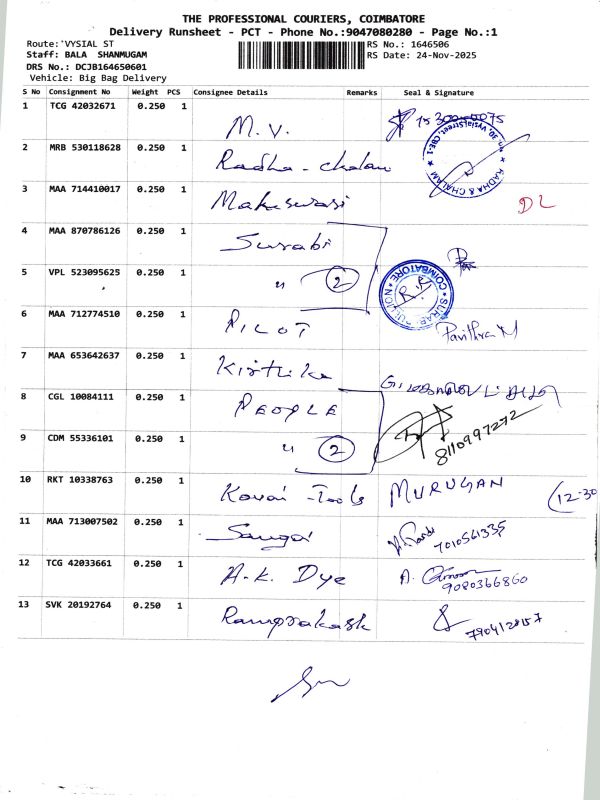 THE PROFESSIONAL COURIERS, COIMBATORE
Delivery Runsheet - PCT - Phone No.:9047080280 - Page No.:1
Route: VYSIAL ST RS No.: 1646506
Staff: BALA SHANMUGAM RS Date: 24-Nov-2025
DRS No.: DCJB164650601
Vehicle: Big Bag Delivery
S No Consignment No Weight PCS Consignee Details Remarks Seal & Signature
1 TCG 42032671 0.250 1 M. V.
2 MRB 530118628 0.250 1 Radha - chalam RADHA & CHALAM
3 MAA 714410017 0.250 1 Maheswari DL
4 MAA 870786126 0.250 1 Surabi
5 VPL 523095625 0.250 1 " 2 COIMBATORE
6 MAA 712774510 0.250 1 PILOT Pavithra M
7 MAA 653642637 0.250 1 Kirthika
8 CGL 10084111 0.250 1 PEOPLE
9 CDM 55336101 0.250 1 " 2 8110997272
10 RKT 10338763 0.250 1 Kovai - Tools MURUGAN (12-30
11 MAA 713007502 0.250 1 7010561335
12 TCG 42033661 0.250 1 A.K. Dye 9080366860
13 SVK 20192764 0.250 1 Ramprakash